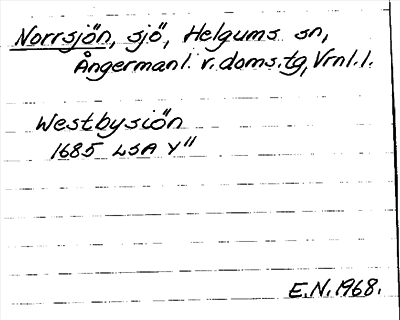 Norrsjön, sjö, Helgums sn,
Ångermanl. v. doms.tg, Vrnl.l.
Westbysiön
1685 LSA Y"
E.N. 1968.